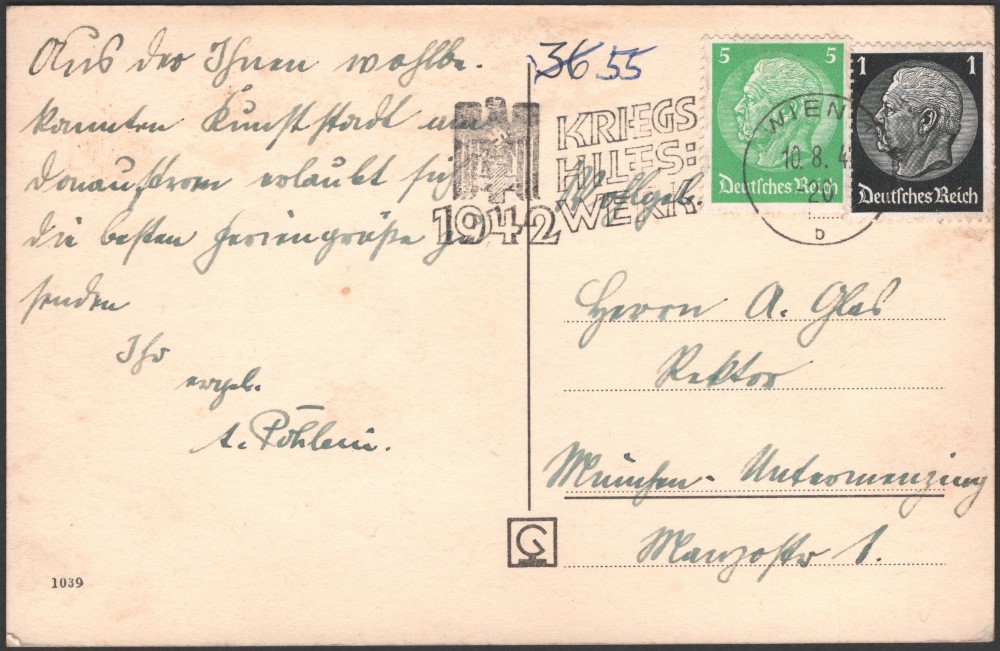 Aus der Ihnen wohlbe-
kannten Kunststadt am
Donaustrom erlaubt sich
die besten Feriengrüße zu
senden
Ihr
ergeb.
A. Pöhlein.
1039
3655
1942
KRIEGS
HILFS:
WERK
5 5
Deutsches Reich
1 1
Deutsches Reich
10.8.4
20
b
Wohlgeb.
Herrn A. Glas
Rektor
München-Untermenzing
Manzostr 1.
G